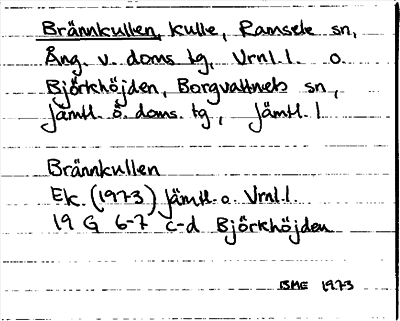 Brännkullen, kulle, Ramsele sn,
Ång. v. doms tg, Vrnl.l. o.
Björkhöjden, Borgvattnets sn,
Jämtl. ö. doms. tg, Jämtl. l
Brännkullen
Ek. (1973) Jämtl. o. Vrnl.l.
19 G 6-7 c-d Björkhöjden
BME 1973